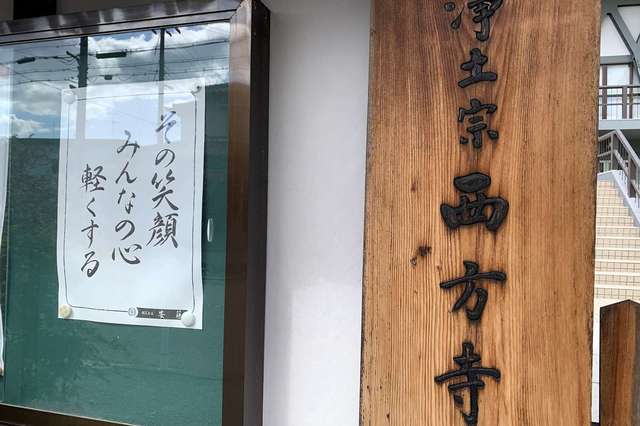 浄土宗西方寺
その笑顔
みんなの心
軽くする